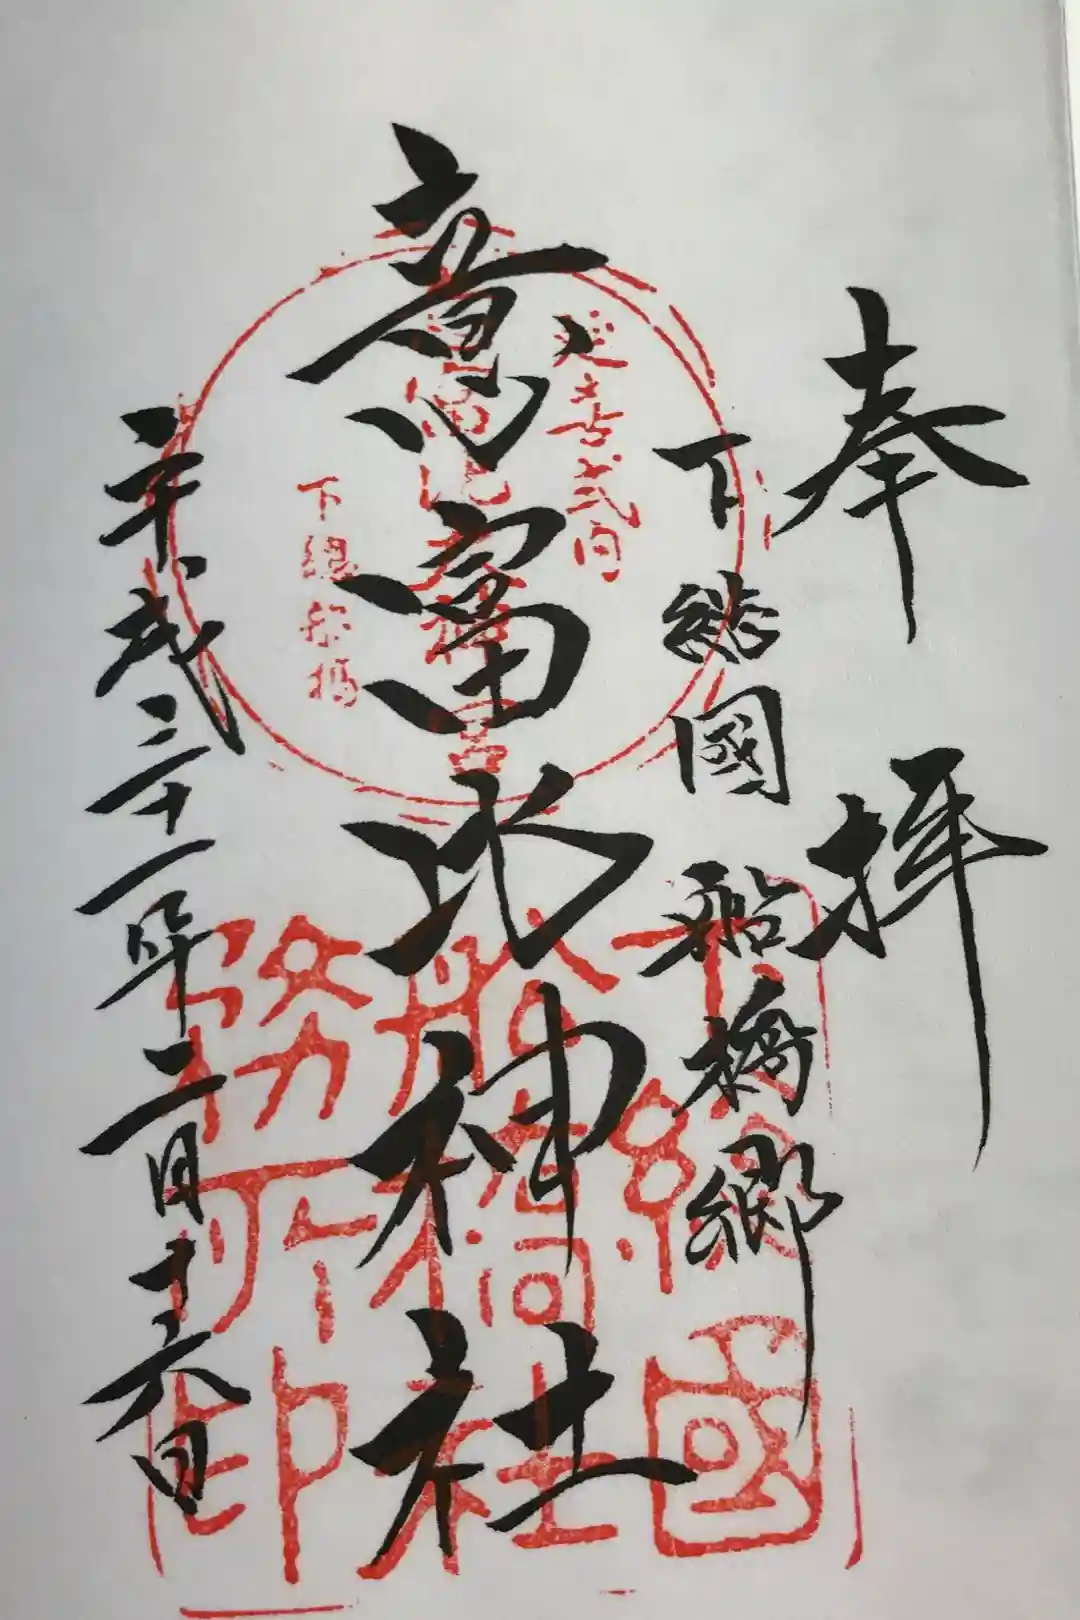 奉拝
下総國船橋郷
意富比神社
平成三十一年二月十六日
延喜式内
下總船橋
下總國
船橋社
務所印